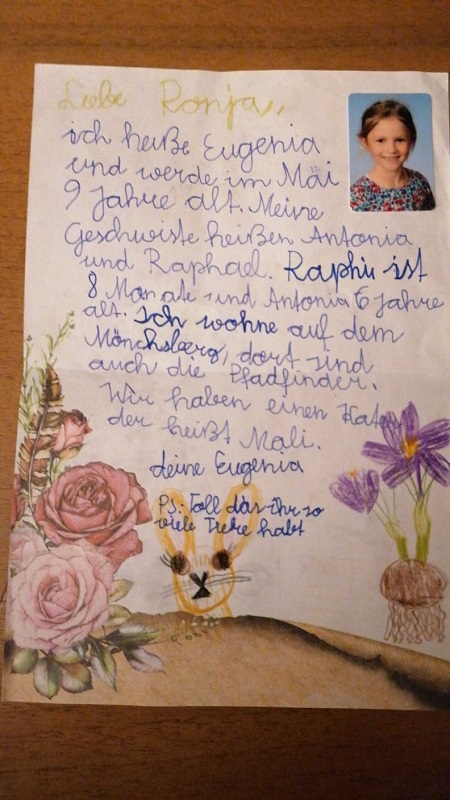 Liebe Ronja,
ich heiße Eugenia
und werde im Mäi
9 Jahre alt. Meine
Geschwiste heißen Antonia
und Raphael. Raphi ist
8 Monate und Antonia 6 Jahre
alt. Ich wohne auf dem
Mönchsberg, dort sind
auch die Pfadfinder.
Wir haben einen Kater
der heißt Mali.
deine Eugenia
PS: Toll das ihr so
viele Tiere habt